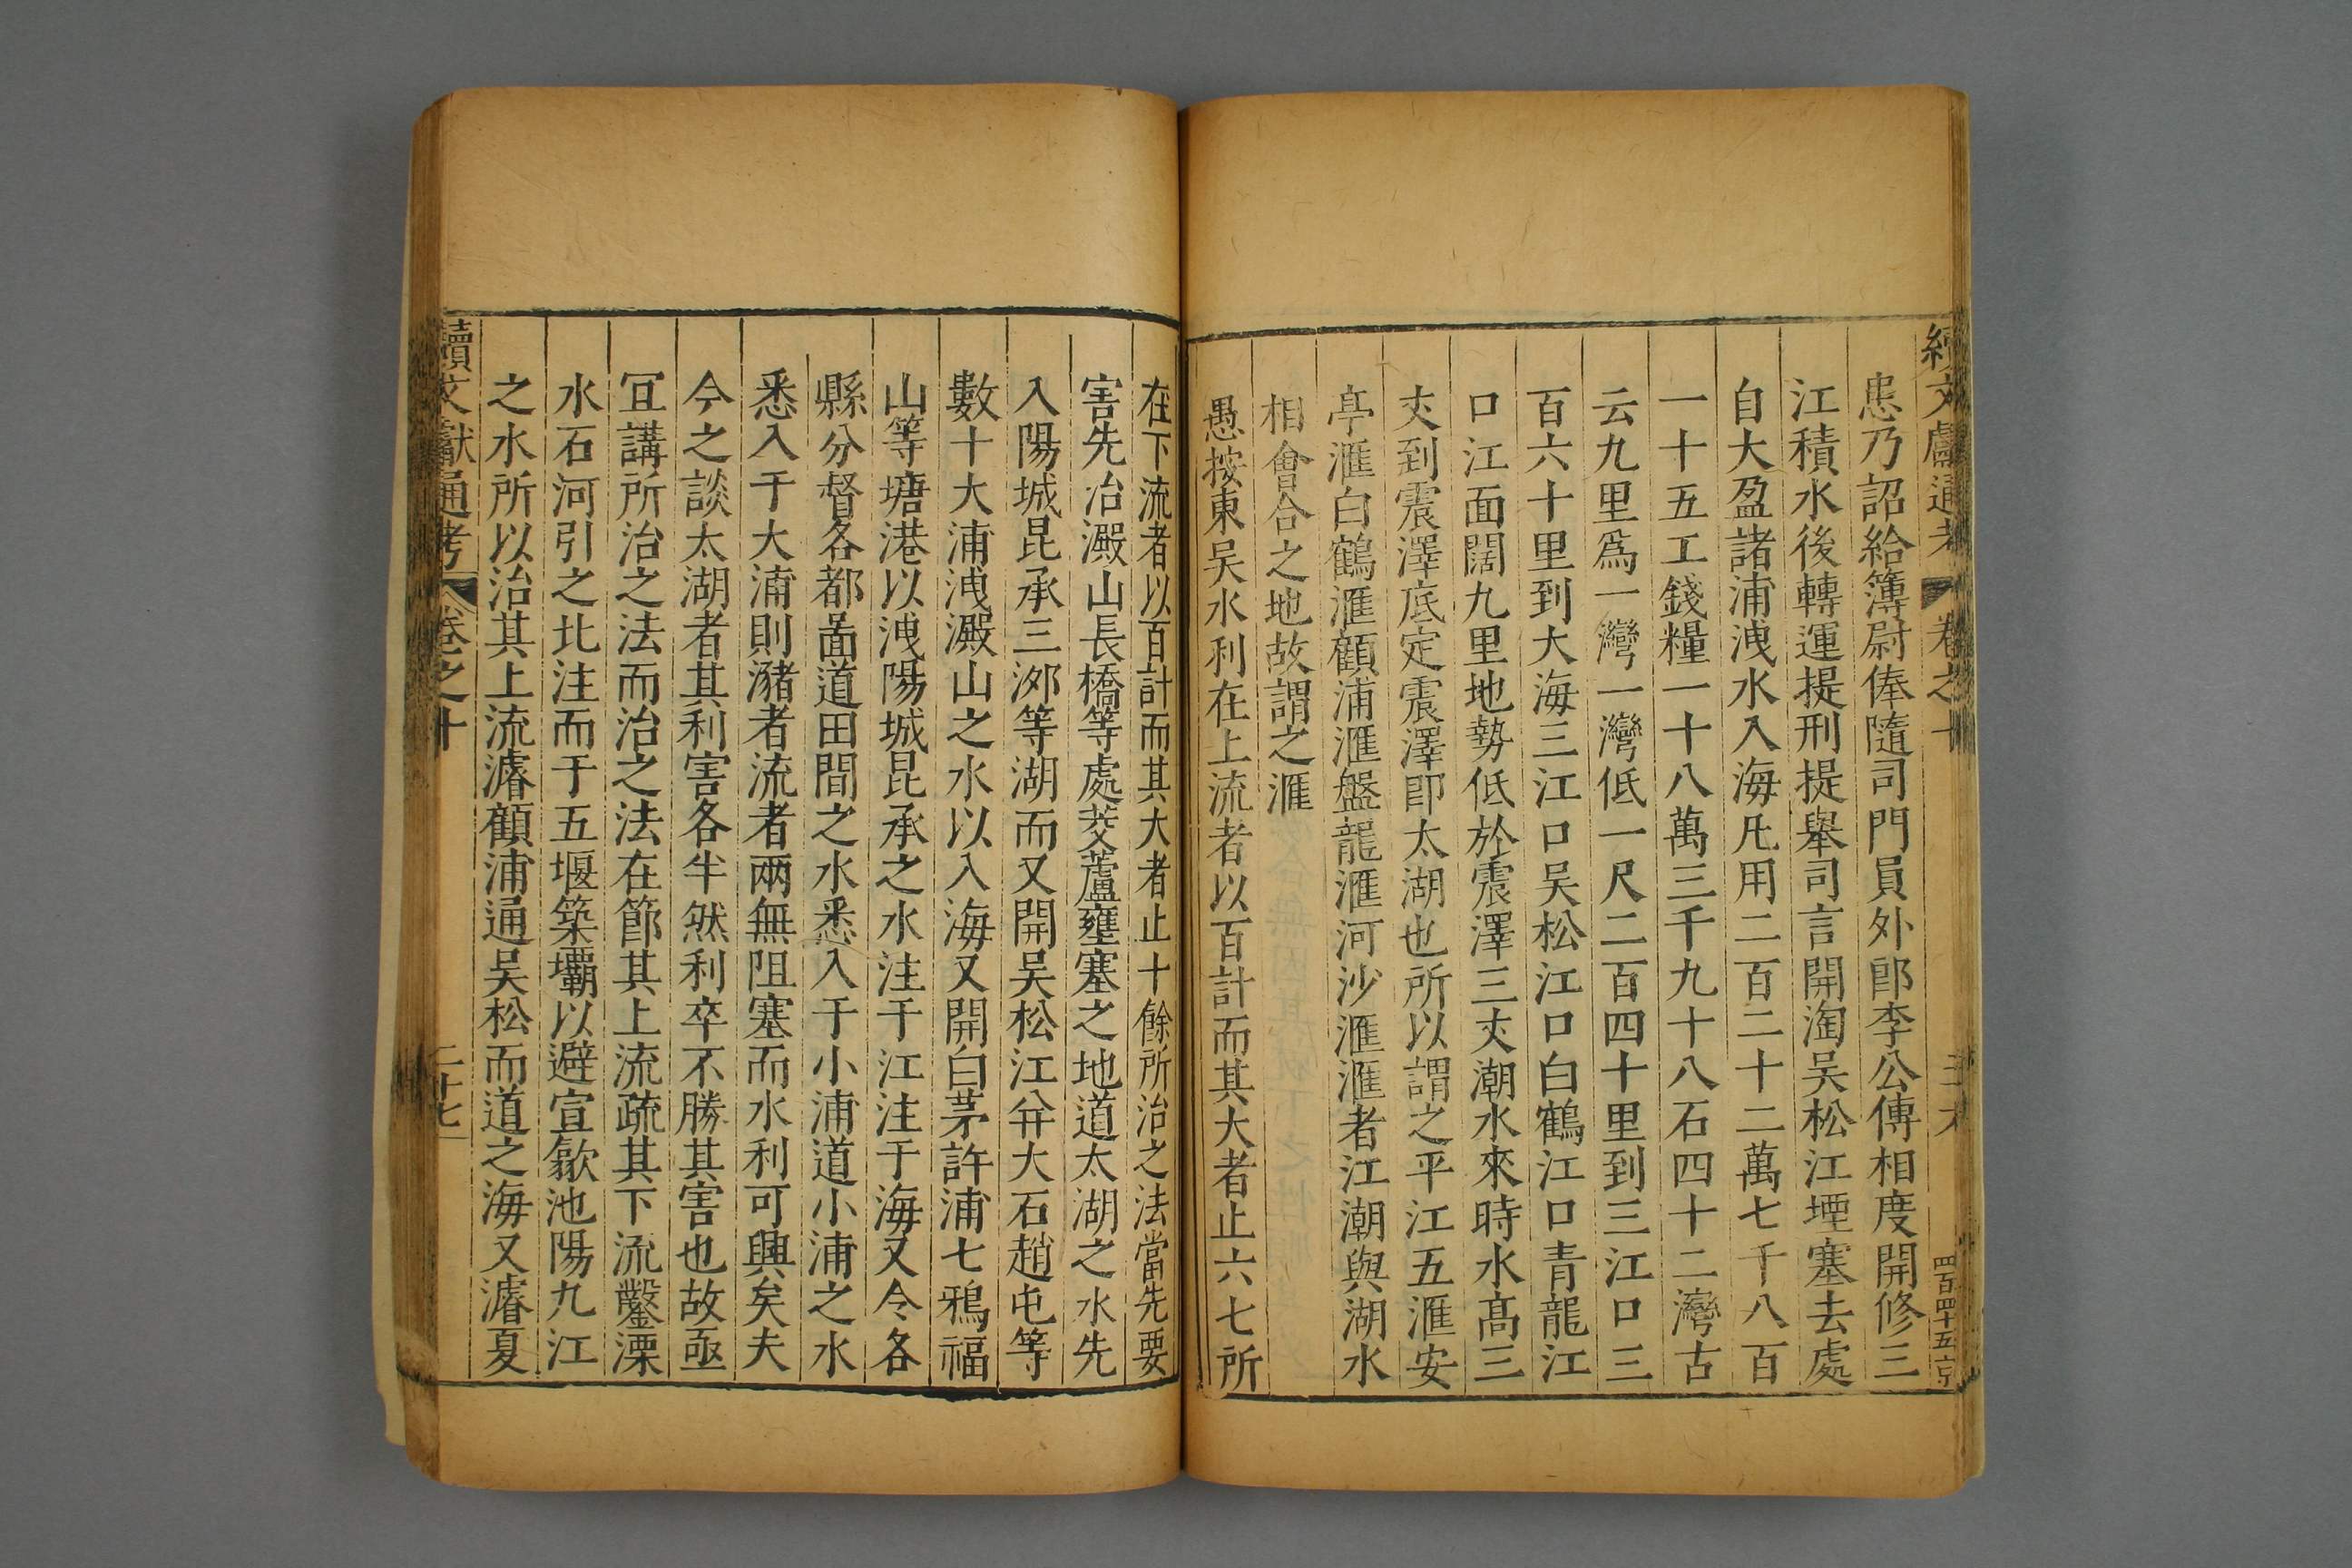 續文獻通考 卷之十
患乃詔給簿尉俸隨司門員外郎李公傳相度開修三
江積水後轉運提刑提舉司言開淘吴松江堙塞去處
自大盈諸浦洩水入海凡用二百二十二萬七千八百
一十五工錢糧一十八萬三千九十八石四十二灣古
云九里爲一灣一灣低一尺二百四十里到三江口三
百六十里到大海三江口吴松江口白鶴江口青龍江
口江面闊九里地勢低於震澤三丈潮水來時水高三
丈到震澤底定震澤即太湖也所以謂之平江五滙安
亭滙白鶴滙顧浦滙盤龍滙河沙滙滙者江潮與湖水
相會合之地故謂之滙
愚按東吴水利在上流者以百計而其大者止六七所
在下流者以百計而其大者止十餘所治之法當先要
害先治澱山長橋等處茭蘆壅塞之地道太湖之水先
入陽城昆承三泖等湖而又開吴松江并大石趙屯等
數十大浦洩澱山之水以入海又開白茅許浦七鴉福
山等塘港以洩陽城昆承之水注于江注于海又令各
縣分督各都啚道田間之水悉入于小浦道小浦之水
悉入于大浦則瀦者流者兩無阻塞而水利可興矣夫
今之談太湖者其利害各半然利卒不勝其害也故亟
冝講所治之法而治之法在節其上流疏其下流鑿溧
水石河引之北注而于五堰築壩以避宣歙池陽九江
之水所以治其上流濬顧浦通吴松而道之海又濬夏
續文獻通考 卷之十 二十七